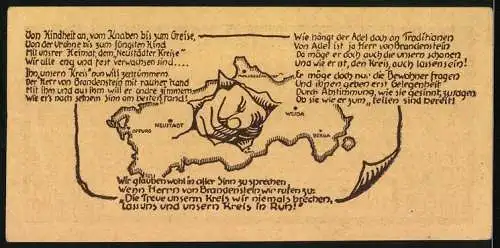 Von Kindheit an, vom Knaben bis zum Greise,
Von der Urahne bis zum jüngsten Kind
Mit unsrer Heimat, dem „Neustädter Kreise"
Wir alle eng und fest verwachsen sind....
Ihn, unsern Kreis nun will zertrümmern
Der Herr von Brandenstein mit rauher Hand
Mit ihm und aus ihm will er andre zimmern
Wie er's nach seinem Sinn am besten fand!
Wie hängt der Adel doch an Traditionen
Von Adel ist ja Herr von Brandenstein
Da möge er doch auch die unsern schonen
und wie er ist, den Kreis, auch lassen sein!
Er möge doch nur die Bewohner fragen
Und ihnen geben erst Gelegenheit
Durch Abstimmung, wie sie gesinnt, zu sagen
Ob sie wie er zum „teilen sind bereit!
OPPURG
NEUSTADT
WEIDA
BERGA
Wir glauben wohl in aller Sinn zu sprechen
Wenn Herrn von Brandenstein wir rufen zu:
„Die Treue unserm Kreis wir niemals brechen,
Lass uns und unsern Kreis in Ruh!"